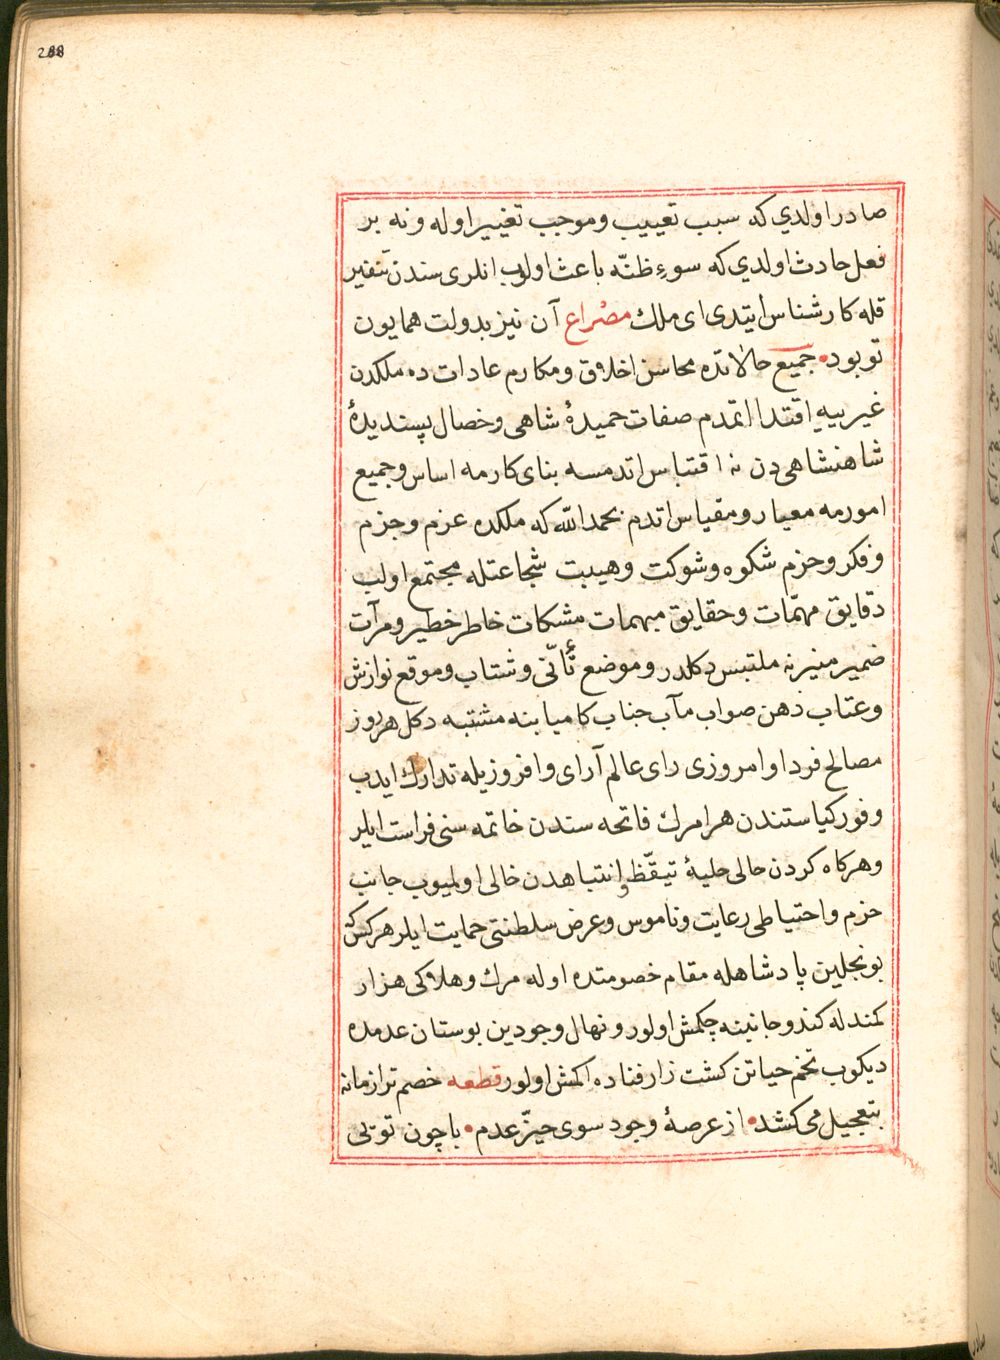 288
صادر اولدي كه سبب تعييب وموجب تغيير اوله ونه بر
فعل حادث اولدي كه سوءِ ظنّه باعث اولوب انلری سندن تنفير
قله كارشناس ايتدی ای ملك مصراع آن نيز بدولت همايون
تو بود • جميع حالاتده محاسن اخلاق ومكارم عادات ده ملكدن
غيرييه اقتدا اتمدم صفات حميدۀ شاهی وخصال پسنديدۀ
شاهنشاهی دن نه اقتباس اتدمسه بنای كارمه اساس وجميع
امورمه معيار ومقياس اتدم بحمد الله كه ملكده عزم وجزم
وفكر وحزم شكوه وشوكت وهيبت شجاعتله مجتمع اولب
دقايق مهمّات وحقايق مبهمات مشكات خاطر خطير ومرآت
ضمير منيرنه ملتبس دكلدر وموضع تأنّی وشتاب وموقع نوازش
وعتاب ذهن صواب مآب جناب كاميابنه مشتبه دكل هر روز
مصالح فردا و امروزی رای عالم آرای وافروزيله تدارك ايدب
وفور كياستندن هر امرك فاتحه سندن خاتمه سنی فراست ايلر
وهركاه كردن حالی حليۀ تيقّظ وانتباهدن خالی اولميوب جانب
حزم واحتياطی رعايت وناموس وعرض سلطنتی حمايت ايلر هركس كه
بونجلين پادشاهله مقام خصومتده اوله مرك وهلاكی هزار
كمندله كندو جانبنه چكمش اولور ونهال وجودين بوستان عدمده
ديكوب تخم حياتن كشت زار فناده اكمش اولور قطعه خصم ترا زمانه
بتعجيل می كشد • از عرصۀ وجود سوی حيّز عدم • با چون تويی